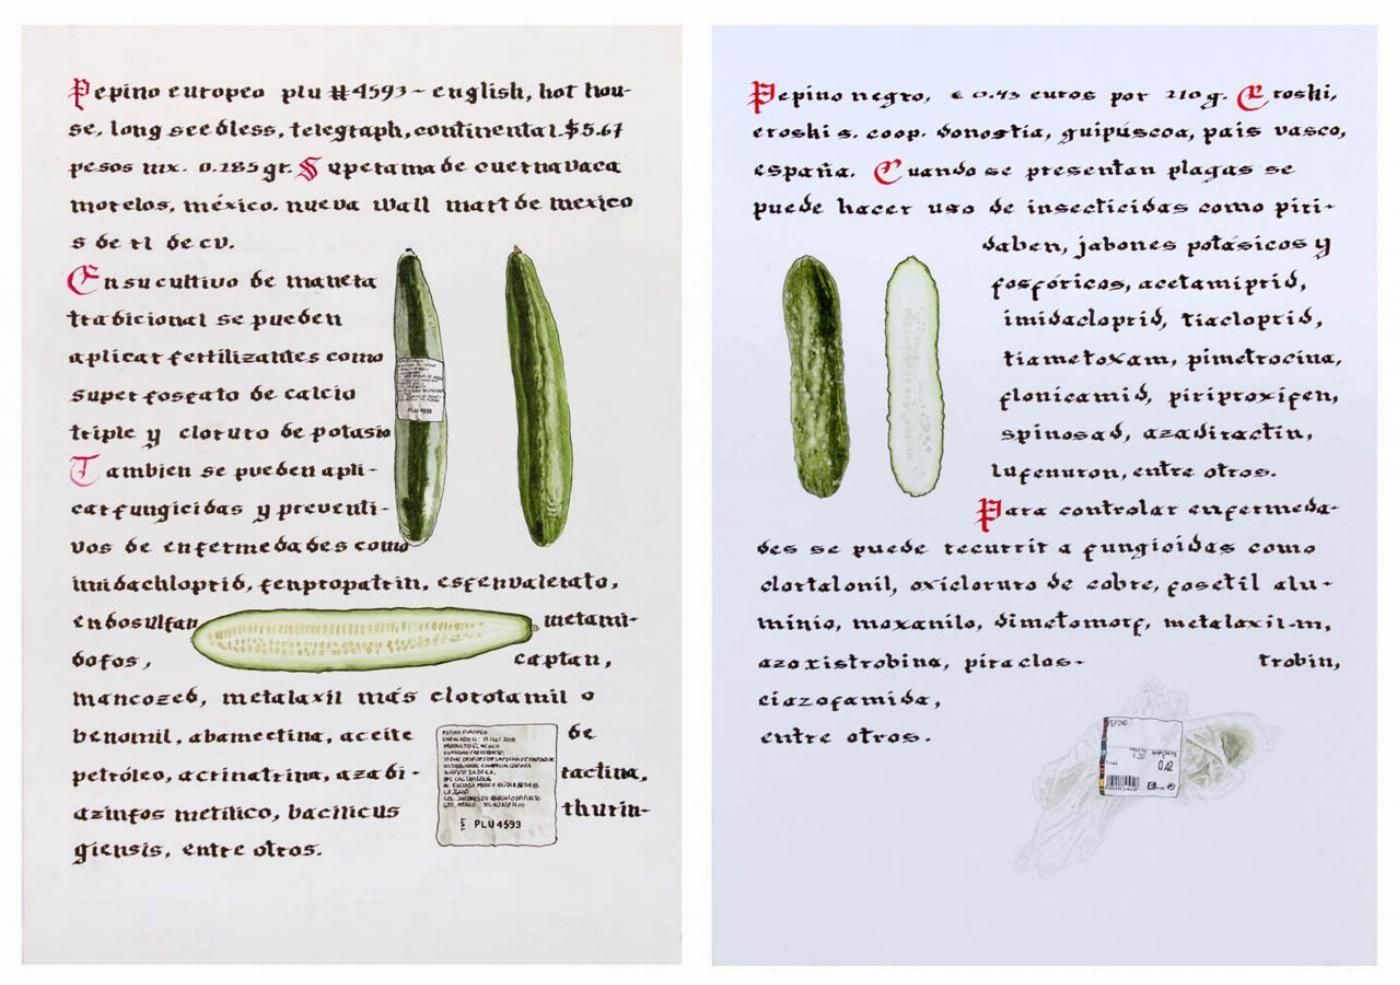 Pepino europeo plu #4593 ~ english, hot hou-
se, long seedless, telegraph, continental. $5.67
pesos mx. 0.285 gr. Superama de cuernavaca
morelos, méxico. nueva wall mart de mexico
s de rl de cv.
En su cultivo de manera
tradicional se pueden
aplicar fertilizantes como
super fosfato de calcio
triple y cloruro de potasio
Tambien se pueden apli-
car fungicidas y preventi-
vos de enfermedades como
imidachloprid, fenpropatrin, esfenvalerato,
endosulfan metami-
dofos, captan,
mancozeb, metalaxil más clorotamil o
benomil, abamectina, aceite de
petróleo, acrinatrina, azadi- ractina,
azinfos metílico, bacillcus thurin-
giensis, entre otros.
PEPINO EUROPEO
PLU 4593
PLU 4593
Pepino negro, € 0.43 euros por 210 g. Eroski,
eroski s. coop. donostia, guipúscoa, pais vasco,
españa. Cuando se presentan plagas se
puede hacer uso de insecticidas como piri-
daben, jabones potásicos y
fosfóricos, acetamiprid,
imidacloprid, tiacloprid,
tiametoxam, pimetrocina,
flonicamid, piriproxifen,
spinosad, azadiractin,
lufenuron, entre otros.
Para controlar enfermeda-
des se puede recurrir a fungicidas como
clortalonil, oxicloruro de cobre, fosetil alu-
minio, moxanilo, dimetomorf, metalaxil-m,
azoxistrobina, piraclos- trobin,
ciazofamida,
entre otros.
PEPINO